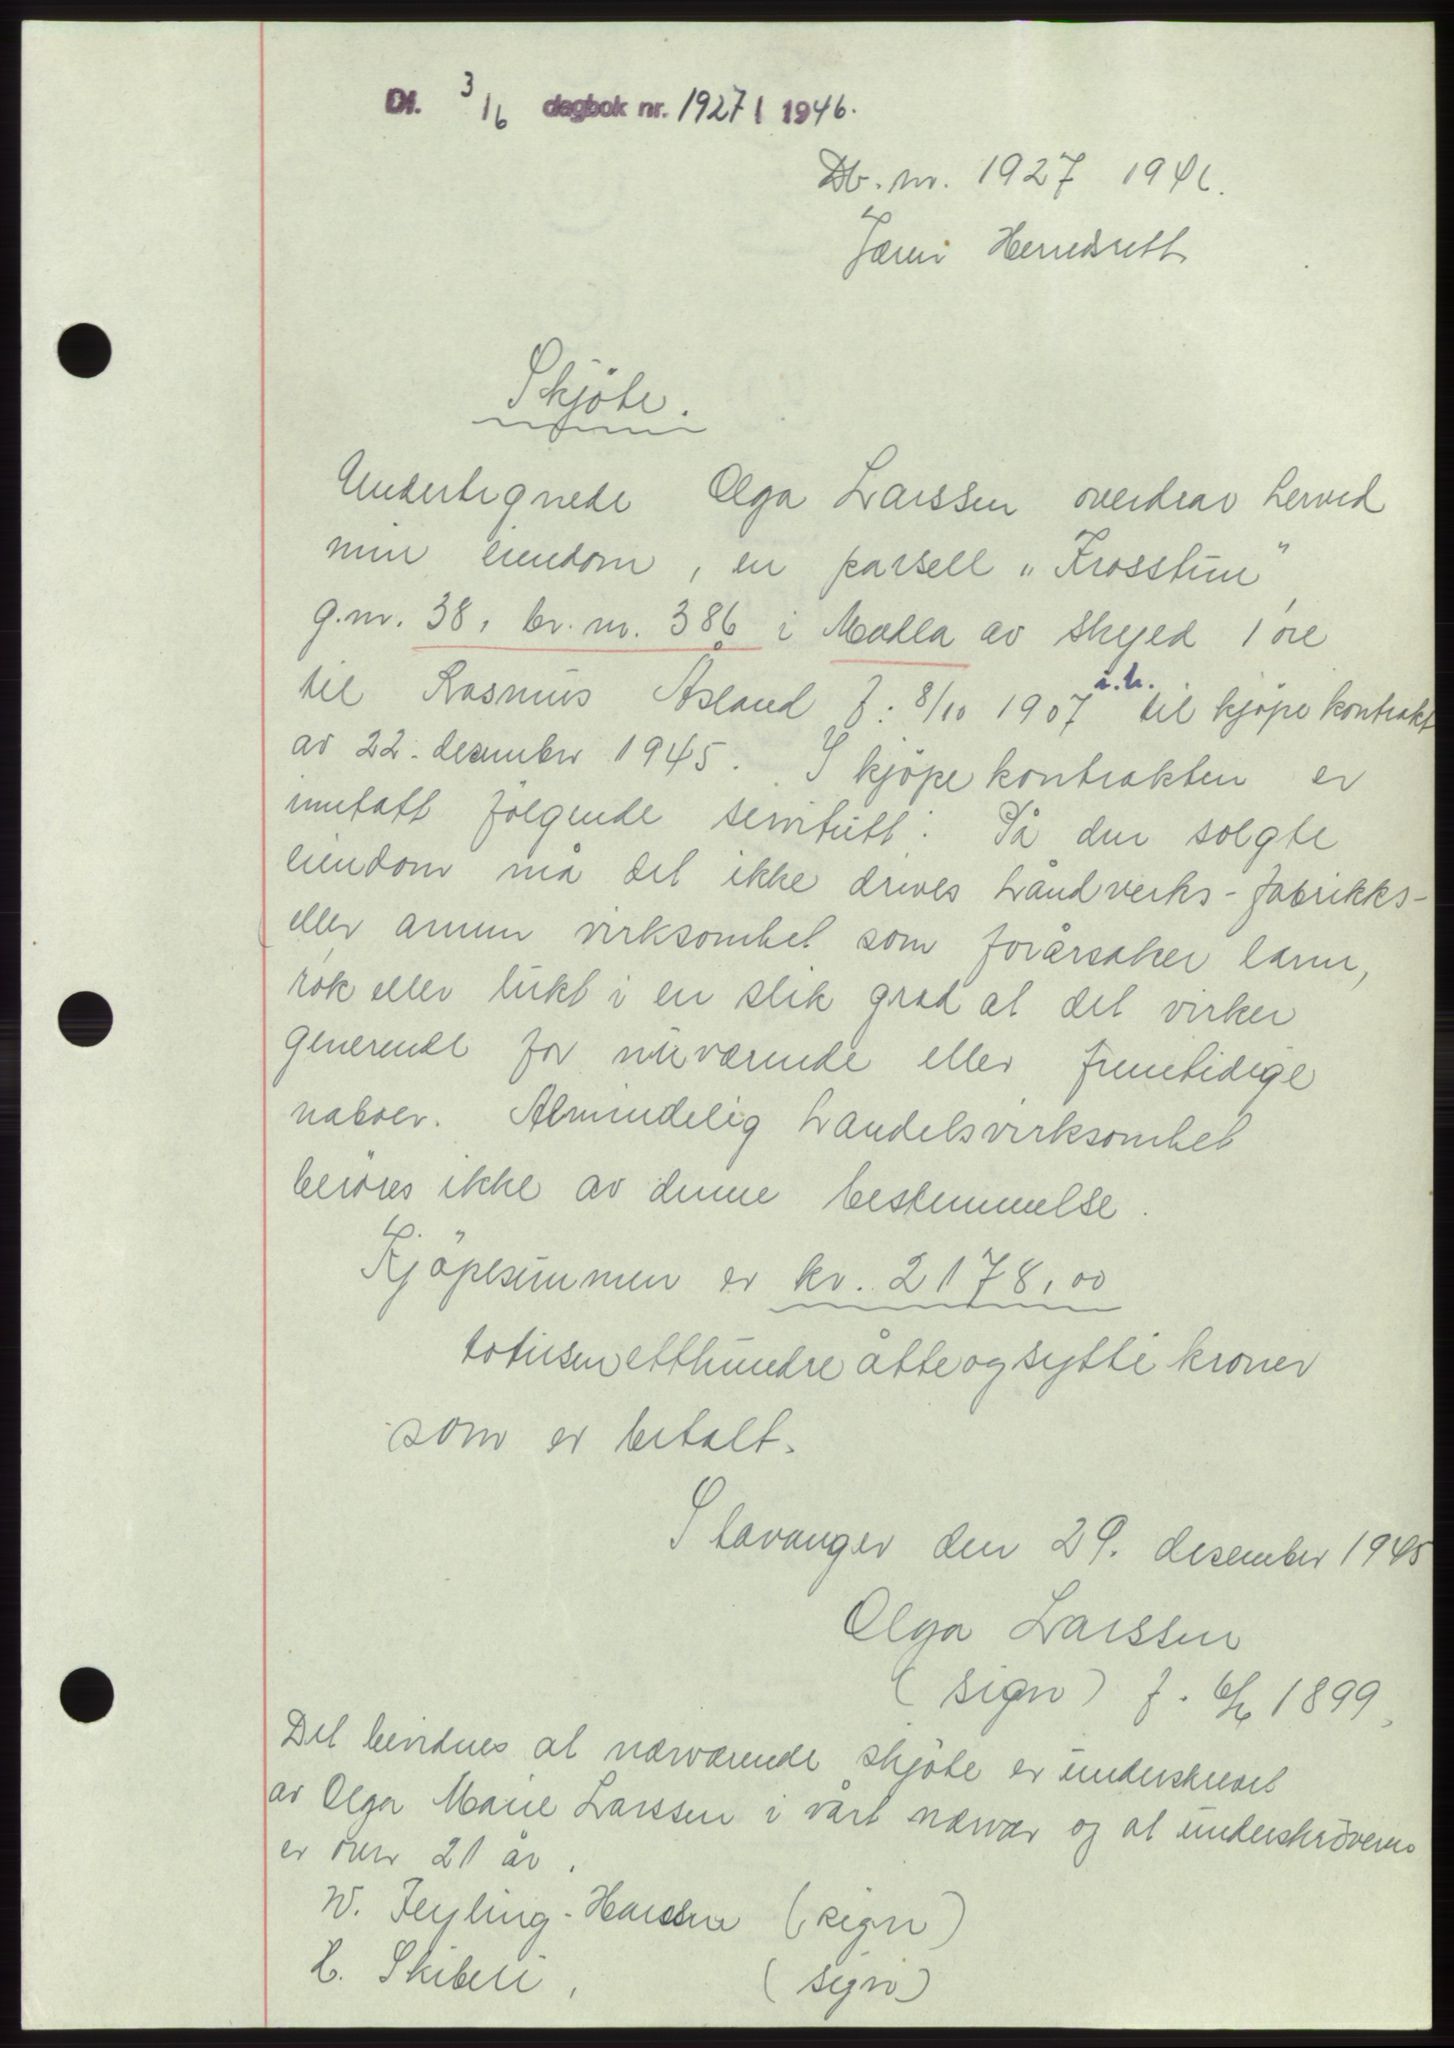 Df. 3/6 dagbok nr. 1927 / 1946.
Db. nr. 1927 1946.
Jæren Herredsrett
Skjöte.
Undertegnede Olga Larssen overdrar herved
min eiendom, en parsell "Krosstun"
g.nr. 38, br. nr. 386 i Madla av skyld 1 öre
til Rasmus Åsland f: 8/10 1907 i.h. til kjöpekontrakt
av 22. desember 1945. I kjöpekontrakten er
inntatt fölgende servitutt: På den solgte
eiendom må det ikke drives håndverks- fabrikks-
eller annen virksomhet som forårsaker larm,
rök eller lukt i en slik grad at det virker
generende for nuværende eller fremtidige
naboer. Almindelig handelsvirksomhet
beröres ikke av denne bestemmelse.
Kjöpesummen er kr. 2178,00
totusenetthundreåtteogsytti kroner
som er betalt.
Stavanger den 29. desember 1945
Olga Larssen
(sign) f. 6/6 1899,
Det bevidnes at nærværende skjöte er underskrevet
av Olga Marie Larssen i vårt nærvær og at underskriveren
er over 21 år.
W. Feyling-Hanssen (sign)
H. Skiberi, (sign)